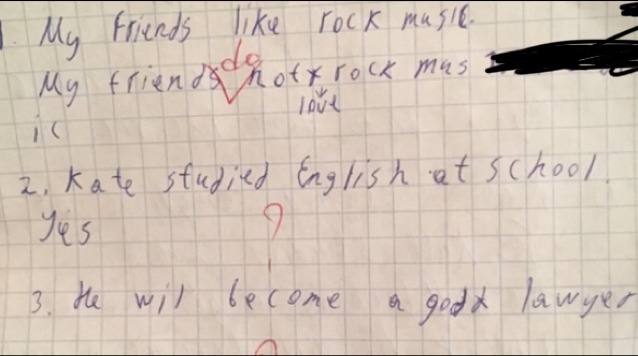 1. My friends like rock music.
My friends do not rock mus
love
ic
2. Kate studied English at school.
Yes
?
3. He wil become a good lawyer